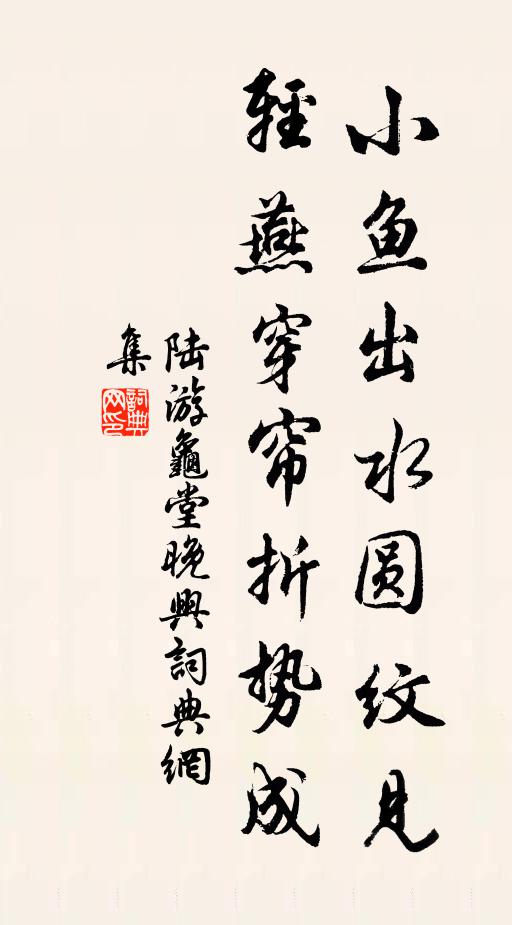 小鱼出水圆纹见
轻燕穿帘折势成
陆游龜堂晚興詞典網
集
詞典
网印